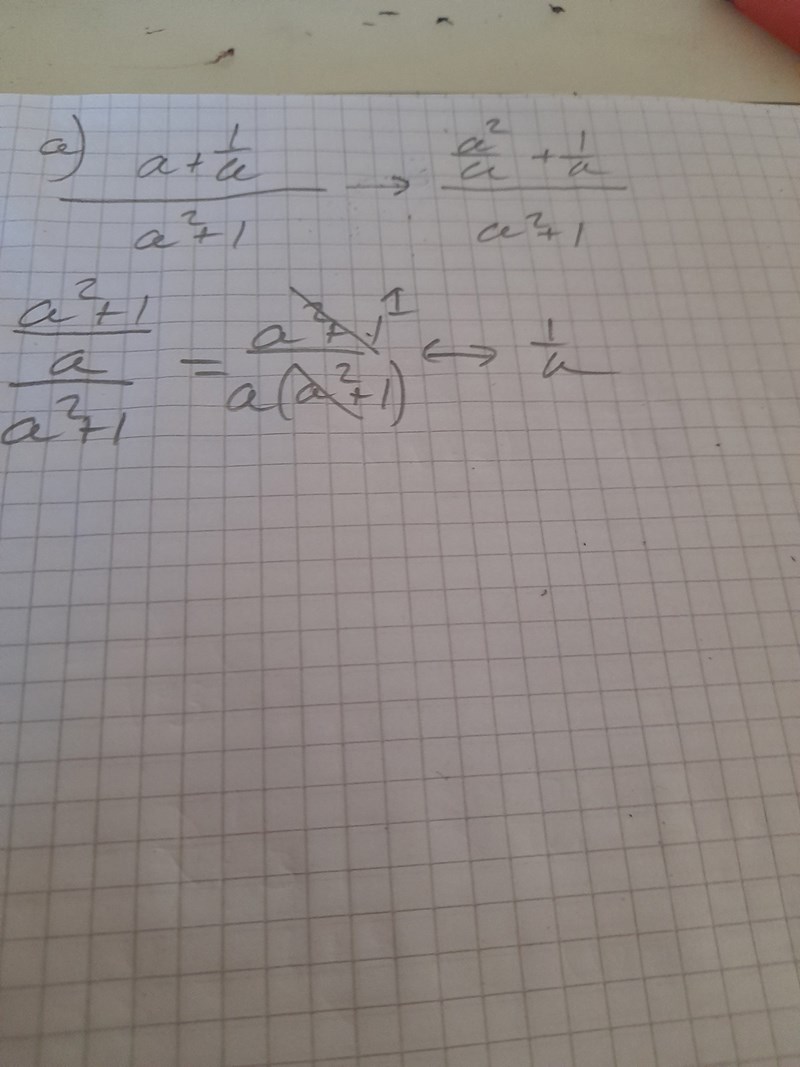 a) (a + 1/a)/(a² + 1) → (a²/a + 1/a)/(a² + 1)
((a² + 1)/a)/(a² + 1) = (a² + 1)/(a(a² + 1)) 1 ↔ 1/a